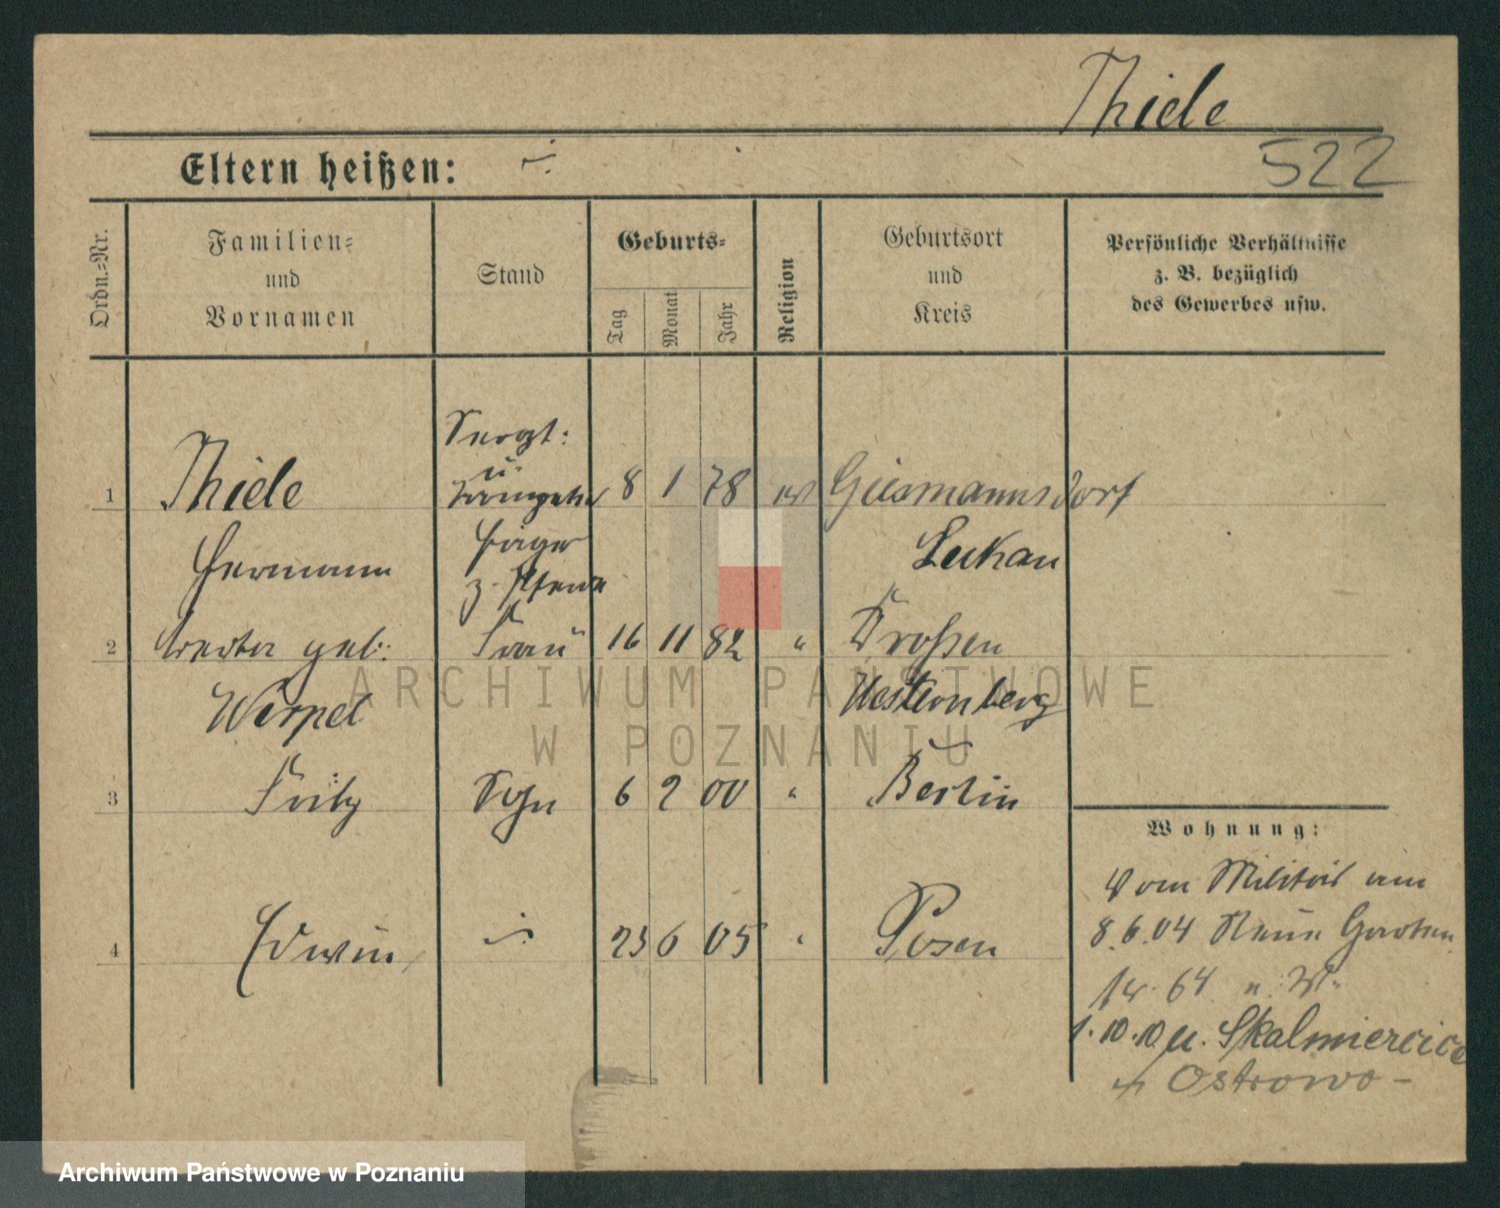 Thiele
522
Eltern heißen: ÷
Ordn.-Nr.
Familien-
und
Vornamen
Stand
Geburts-
Tag
Monat
Jahr
Religion
Geburtsort
und
Kreis
Persönliche Verhältnisse
z. B. bezüglich
des Gewerbes usw.
1 Thiele Sergt. u. 8 1 78 ev Giesmannsdorf
Hermann
Luckau
2 geb. Frau 16 11 82 " Drossen
Werpel
Westernberg
3 Fritz Sohn 6 2 00 " Berlin
4 Edwin ÷ 23 6 05 " Posen
Wohnung:
Vom Militär am
8.6.04 Neue Garten
str. 64 u. W.
1.10.10 u. Skalmiercice
Ostrowo -
ARCHIWUM PAŃSTWOWE
W POZNANIU
Archiwum Państwowe w Poznaniu